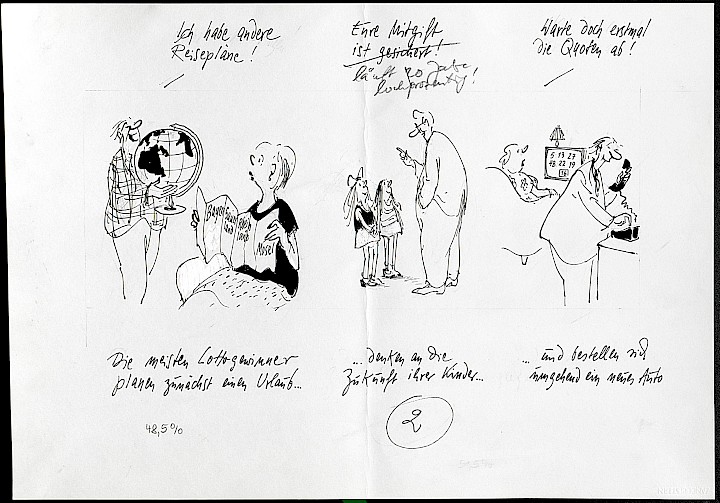 Ich habe andere
Reisepläne!
Eure Mitgift
ist gesichert!
läuft 20 Jahre
hochprozentig!
Warte doch erstmal
die Quoten ab!
Bayern
Mosel
5 13 27
43 22 19
16
Die meisten Lottogewinner
planen zunächst einen Urlaub...
...denken an die
Zukunft ihrer Kinder...
...und bestellen sich
umgehend ein neues Auto
48,5%
2